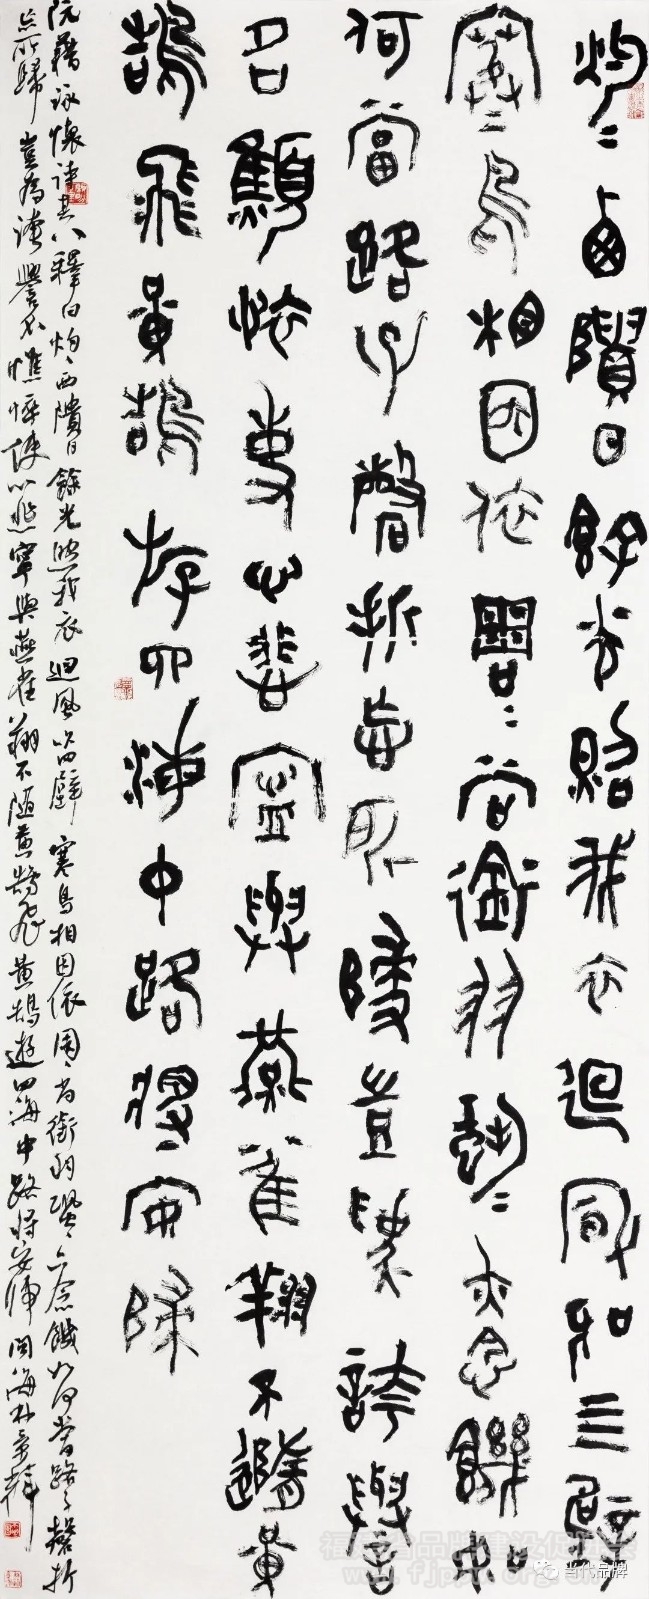 灼〻西隤日餘光照我衣迴風吹四壁
寒鳥相因依周〻尚銜羽蛩〻亦念饑如
何當路子磬折忘所歸豈為誇譽
名顦悴使心悲寧與燕雀翔不隨黃
鵠飛黃鵠游四海中路將安歸
阮籍詠懷詩其八釋曰灼〻西隤日餘光照我衣迴風吹四壁寒鳥相因依周〻尚銜羽蛩〻亦念饑如何當路子磬折
忘所歸豈為誇譽名憔悴使心悲寧與燕雀翔不隨黃鵠飛黃鵠遊四海中路將安歸閩海林
当代品牌